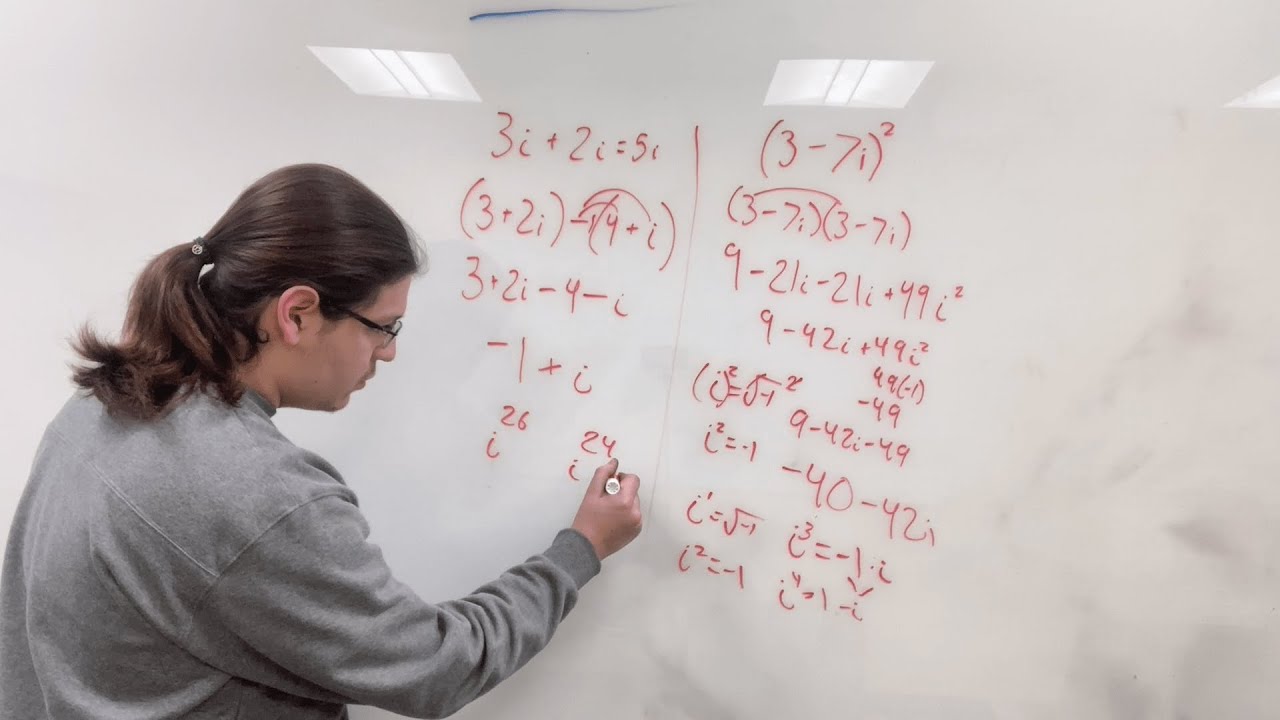 3i + 2i = 5i
(3+2i) -1(4 + i)
3+2i - 4 - i
-1 + i
i²⁶
i²⁴
(3 - 7i)²
(3 - 7i)(3 - 7i)
9 - 21i - 21i + 49i²
9 - 42i + 49i²
49(-1)
-49
(i)² = √-1²
i² = -1
9 - 42i - 49
-40 - 42i
i¹ = √-1
i² = -1
i³ = -1·i
-i
i⁴ = 1